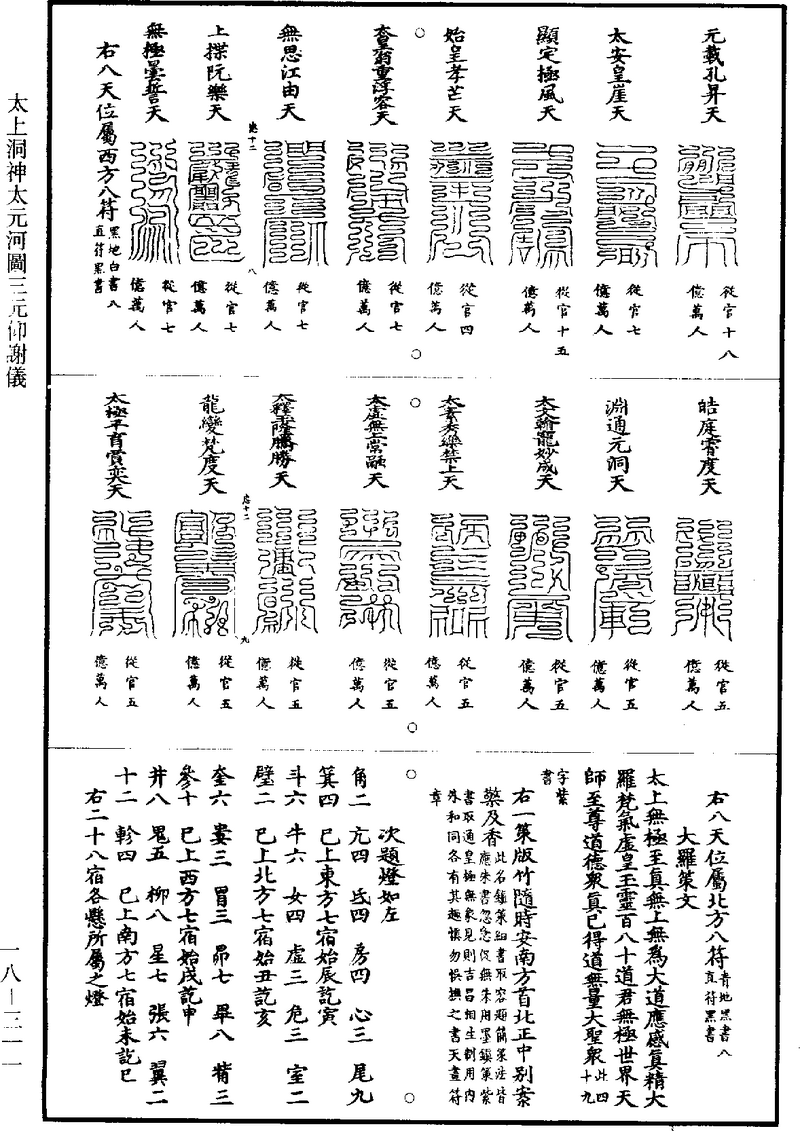 元載孔昇天
從官十八
億萬人
太安皇崖天
從官七
億萬人
顯定極風天
從官十五
億萬人
始皇孝芒天
從官四
億萬人
太皇翁重浮容天
從官七
億萬人
無思江由天
從官七
億萬人
上揲阮樂天
從官七
億萬人
無極曇誓天
從官七
億萬人
右八天位屬西方八符黑地白書八
直符黑書
皓庭霄度天
從官五
億萬人
淵通元洞天
從官五
億萬人
太文翰寵妙成天
從官五
億萬人
太素秀樂禁上天
從官五
億萬人
太虛無上常融天
從官五
億萬人
太釋玉隆騰勝天
從官五
億萬人
龍變梵度天
從官五
億萬人
太極平育賈奕天
從官五
億萬人
右八天位屬北方八符青地黑書八
直符黑書
大羅策文
太上無極至真無上無為大道應感真精大
羅梵氣虛皇玉靈百八十道君無極世界天
師至尊道德衆真已得道無量大聖衆此四
十九
字紫
書
右一策版竹隨時安南方首北正中別案
藥及香
次題燈如左
角二　亢四　氐四　房四　心三　尾九
箕四　已上東方七宿始辰訖寅
斗六　牛六　女四　虛三　危三　室二
壁二　已上北方七宿始丑訖亥
奎六　婁三　胃三　昴七　畢八　觜三
參十　已上西方七宿始戌訖申
井八　鬼五　柳八　星七　張六　翼二
十二　軫四　已上南方七宿始未訖巳
右二十八宿各懸所屬之燈
太上洞神太元河圖三元仰謝儀
一八—三一一